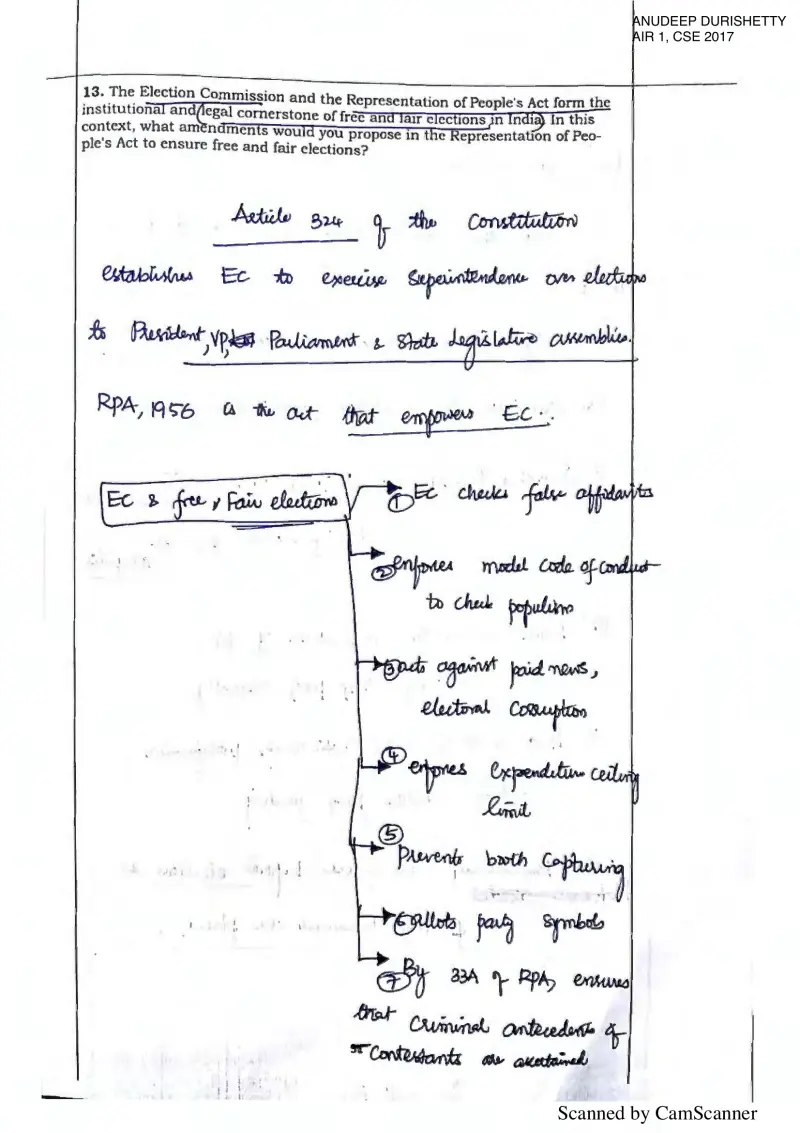 ANUDEEP DURISHETTY
AIR 1, CSE 2017
13. The Election Commission and the Representation of People's Act form the
institutional and legal cornerstone of free and fair elections in India. In this
context, what amendments would you propose in the Representation of Peo-
ple's Act to ensure free and fair elections?
Article 324 of the Constitution
establishes EC to exercise Superintendence over elections
to President, VP, Parliament & State Legislative assemblies.
RPA, 1956 is the act that empowers EC.
EC & free, Fair elections
① EC checks false affidavits
② enforces model code of conduct
to check populism
③ acts against paid news,
electoral corruption
④ enforces expenditure ceiling
limit
⑤
Prevents booth capturing
⑥ allots party symbols
⑦ By 33A of RPA, ensures
that criminal antecedents of
contestants are ascertained
Scanned by CamScanner